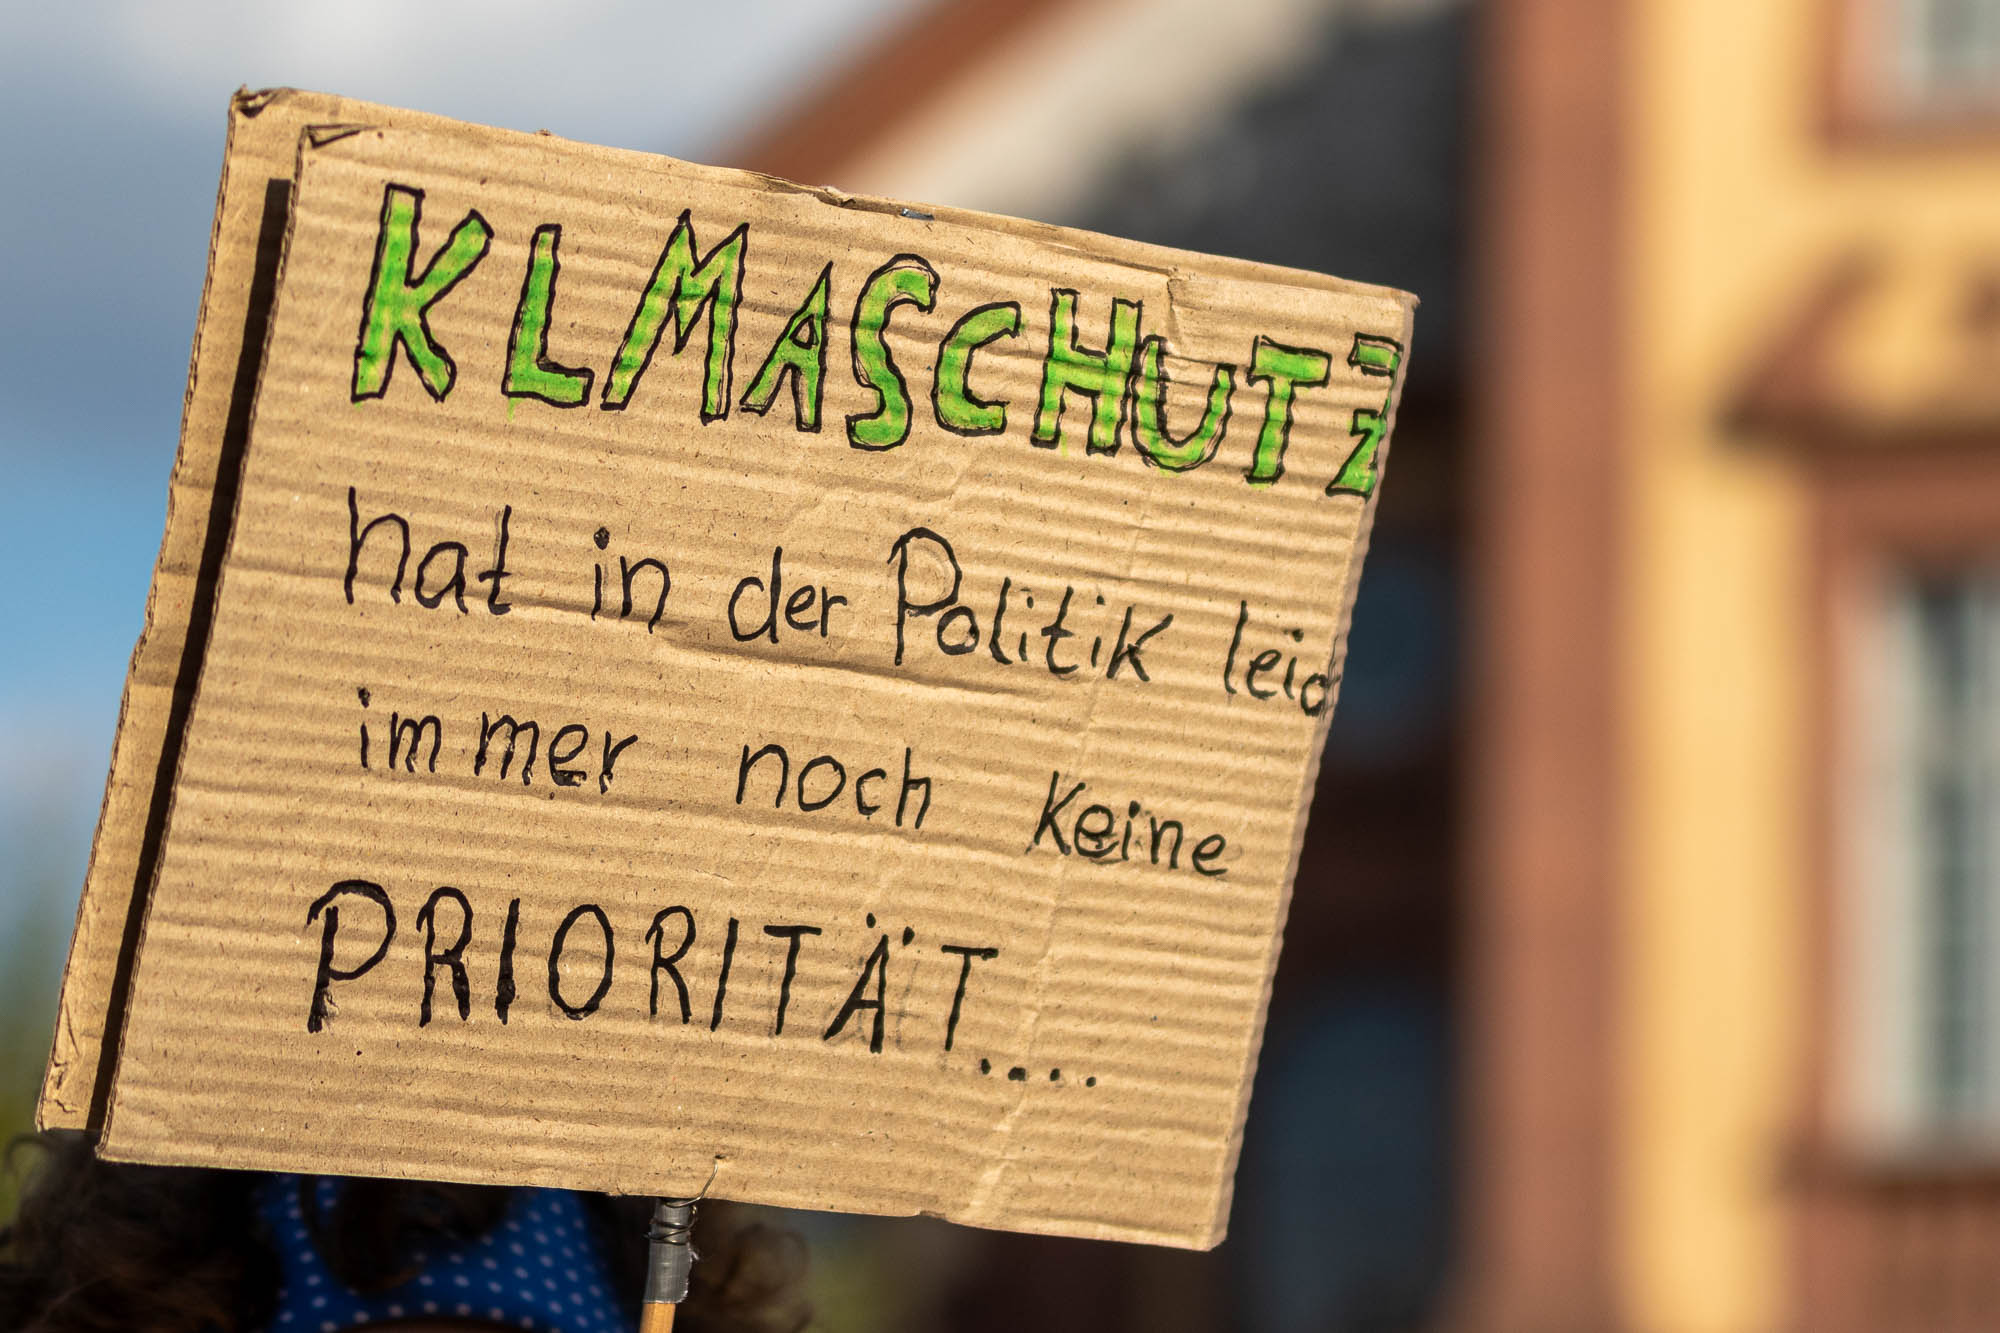 KLMASCHUTZ
hat in der Politik leid
immer noch keine
PRIORITÄT....